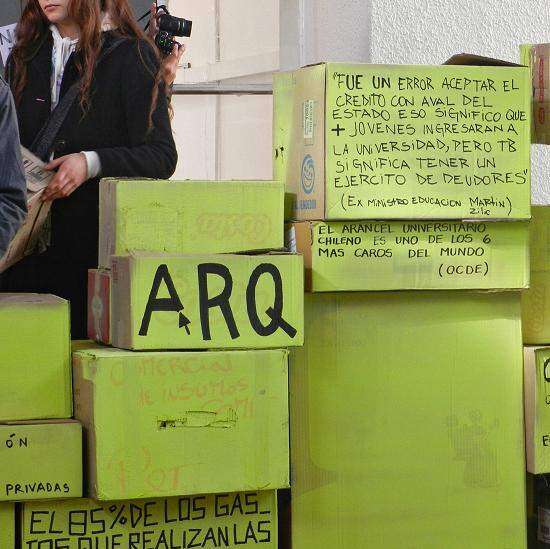 "FUE UN ERROR ACEPTAR EL
CREDITO CON AVAL DEL
ESTADO ESO SIGNIFICO QUE
+ JOVENES INGRESARAN A
LA UNIVERSIDAD, PERO TB
SIGNIFICA TENER UN
EJERCITO DE DEUDORES"
(EX MINISTRO EDUCACION MARTIN
ZILIC
EL ARANCEL UNIVERSITARIO
CHILENO ES UNO DE LOS 6
MAS CAROS DEL MUNDO
(OCDE)
ARQ
DE INSUMOS
ÓN
PRIVADAS
EL 85% DE LOS GAS_
TOS QUE REALIZAN LAS